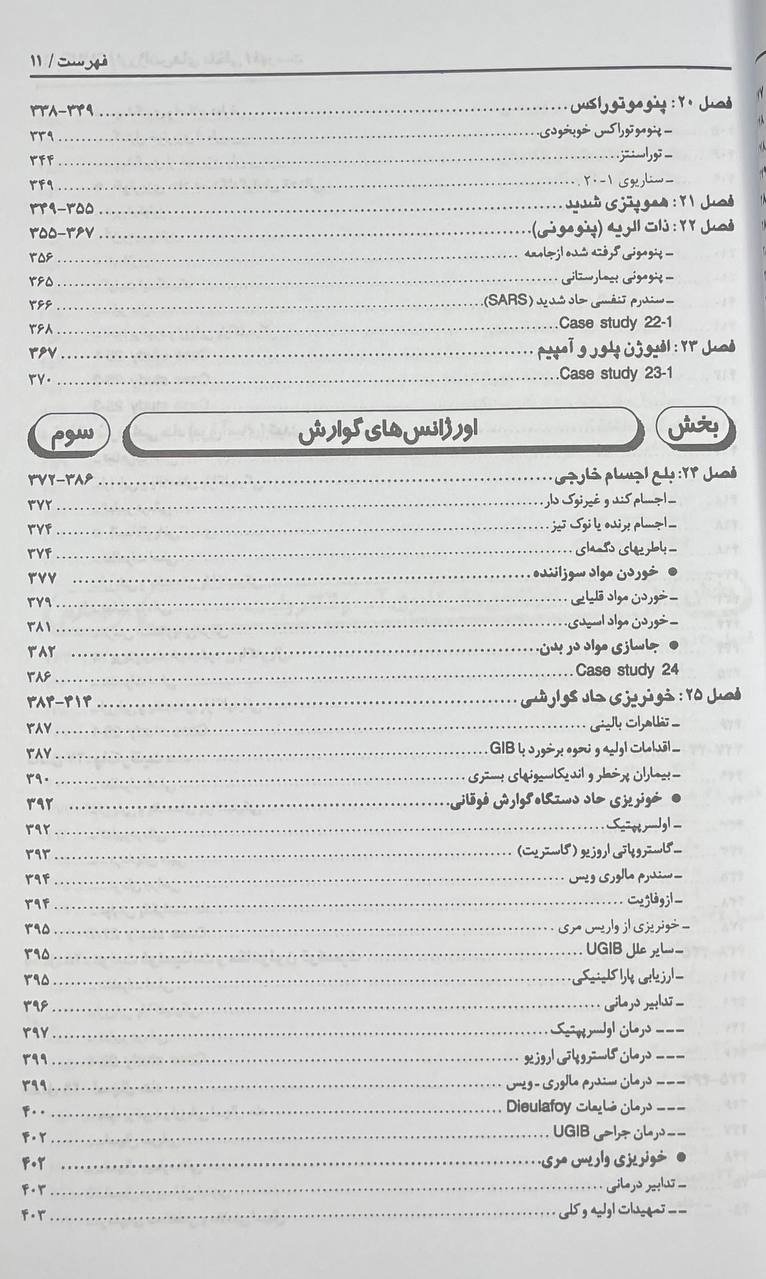 فهرست / ۱۱
فصل ۲۰: پنوموتوراکس ۳۳۸-۳۴۹
- پنوموتوراکس خوبخودی ۳۳۹
- توراسنتز ۳۴۴
- سناریوی ۱-۲۰ ۳۴۹
فصل ۲۱: هموپتزی شدید ۳۴۹-۳۵۵
فصل ۲۲: ذات الریه (پنومونی) ۳۵۵-۳۶۷
- پنومونی گرفته شده ازجامعه ۳۵۶
- پنومونی بیمارستانی ۳۶۵
- سندرم تنفسی حاد شدید (SARS) ۳۶۶
Case study 22-1 ۳۶۸
فصل ۲۳: افیوژن پلور و آمپیم ۳۶۷
Case study 23-1 ۳۷۰
بخش اورژانس‌های گوارش سوم
فصل ۲۴: بلع اجسام خارجی ۳۷۲-۳۸۶
- اجسام کند و غیرنوک دار ۳۷۲
- اجسام برنده یا نوک تیز ۳۷۴
- باطریهای دگمه‌ای ۳۷۴
● خوردن مواد سوزاننده ۳۷۷
- خوردن مواد قلیایی ۳۷۹
- خوردن مواد اسیدی ۳۸۱
● جاسازی مواد در بدن ۳۸۲
Case study 24 ۳۸۶
فصل ۲۵: خونریزی حاد گوارشی ۳۸۴-۴۱۴
- تظاهرات بالینی ۳۸۷
- اقدامات اولیه و نحوه برخورد با GIB ۳۸۷
- بیماران پرخطر و اندیکاسیونهای بستری ۳۹۰
● خونریزی حاد دستگاه گوارش فوقانی ۳۹۲
- اولسرپپتیک ۳۹۲
- گاستروپاتی اروزیو (گاستریت) ۳۹۳
- سندرم مالوری ویس ۳۹۴
- ازوفاژیت ۳۹۴
- خونریزی از واریس مری ۳۹۵
- سایر علل UGIB ۳۹۵
- ارزیابی پاراکلینیکی ۳۹۵
- تدابیر درمانی ۳۹۶
--- درمان اولسرپپتیک ۳۹۷
--- درمان گاستروپاتی اروزیو ۳۹۹
--- درمان سندرم مالوری - ویس ۳۹۹
--- درمان ضایعات Dieulafoy ۴۰۰
-- درمان جراحی UGIB ۴۰۲
● خونریزی واریس مری ۴۰۲
- تدابیر درمانی ۴۰۳
-- تمهیدات اولیه و کلی ۴۰۳